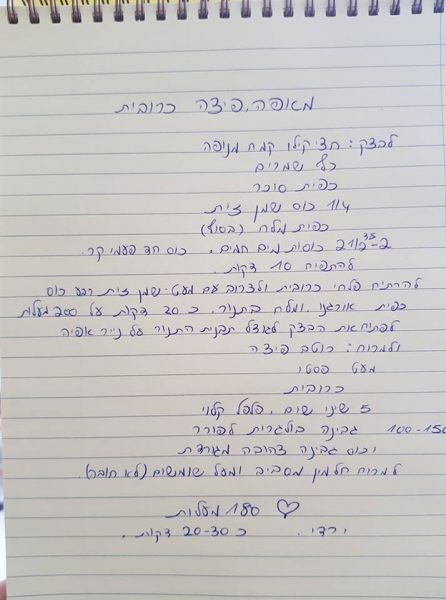 מאפה פיצה כרובית
לבצק: חצי קילו קמח מנופה
כף שמרים
כפית סוכר
1/4 כוס שמן זית
כפית מלח (בסוף)
2-2 1/2 כוסות מים חמים. כוס חד פעמי קר.
להתפיח 10 דקות.
להרתיח פלחי כרובית ולערוב עם מעט שמן זית רבע כוס
כפית אורגנו ומלח בתנור. כ 20 דקות על 200 מעלות
לפתוח את הבצק לגודל תבנית התנור על נייר אפיה
ולמרוח: רוטב פיצה
מעט פסטו
כרובית
5 שיני שום, פלפל קלוי
100-150 גבינה בולגרית לפורר
וכוס גבינה צהובה מגורדת
למרוח חלמון מסביב ומעל שומשום (לא חובה).
180 מעלות ♡
כ 20-30 דקות. ירדי.